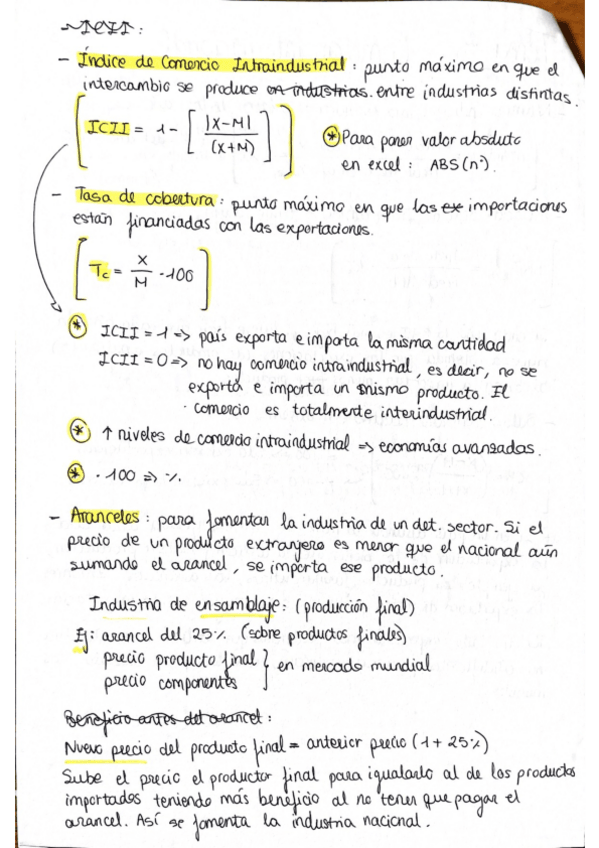 - Índice de Comercio Intraindustrial : punto máximo en que el
intercambio se produce en industrias. entre industrias distintas.
[ICII = 1 - [|X-M| / (X+M)]]
* Para poner valor absoluto
en excel : ABS (nº).
- Tasa de cobertura : punto máximo en que las ex importaciones
están financiadas con las exportaciones.
[Tc = X / M · 100]
* ICII = 1 => país exporta e importa la misma cantidad
ICII = 0 => no hay comercio intraindustrial, es decir, no se
exporta e importa un mismo producto. El
comercio es totalmente interindustrial.
* ↑ niveles de comercio intraindustrial => economías avanzadas.
* · 100 => %.
- Aranceles : para fomentar la industria de un det. sector. Si el
precio de un producto extranjero es menor que el nacional aún
sumando el arancel, se importa ese producto.
Industria de ensamblaje : (producción final)
Ej : arancel del 25% (sobre productos finales)
precio producto final } en mercado mundial
precio componentes
Beneficio antes del arancel :
Nuevo precio del producto final = anterior precio (1 + 25%)
Sube el precio el productor final para igualarlo al de los productos
importados teniendo más beneficio al no tener que pagar el
arancel. Así se fomenta la industria nacional.